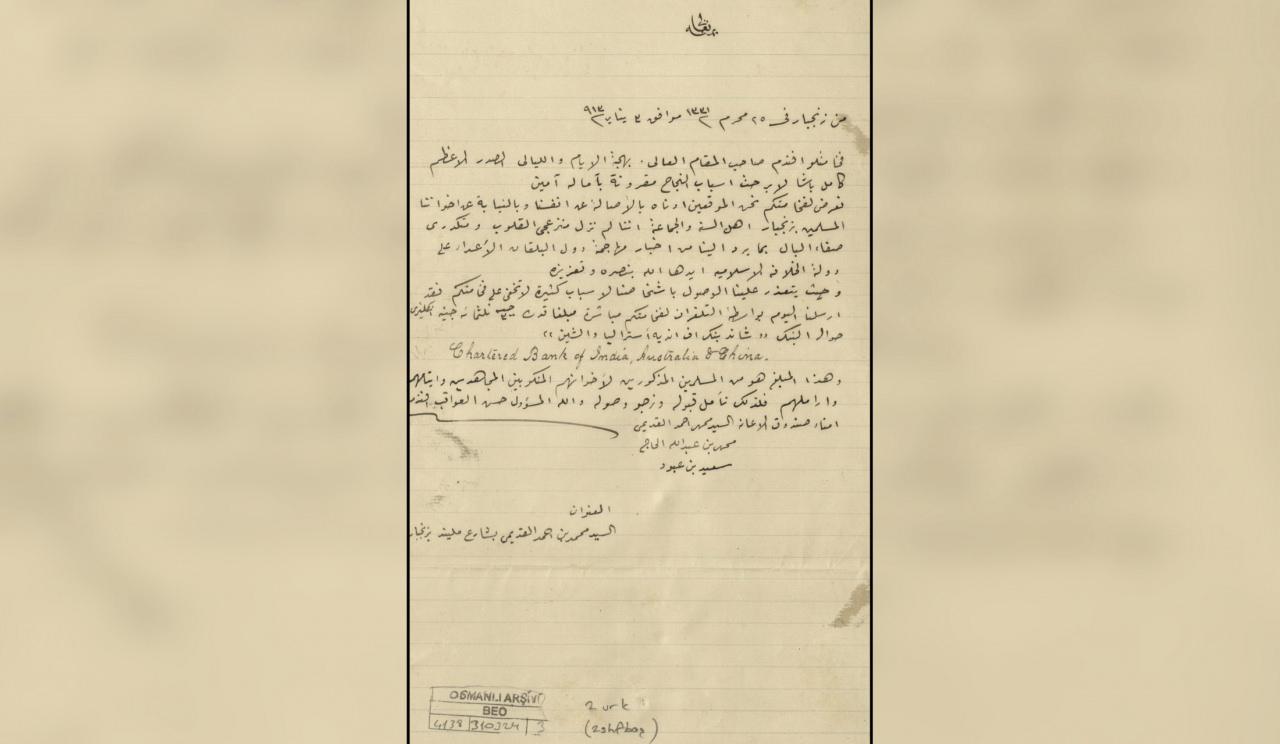 من زنجبار في ٢٥ محرم ١٣٣١ موافق ٣ يناير ٩١٣
صاحب المقام العالي بهجة الايام والليالي الصدر الاعظم
كامل باشا لا برحت اسباب النجاح مقرونة بآماله آمين
نعرض لفخامتكم نحن الموقعين ادناه بالأصالة عن انفسنا وبالنيابة عن اخواننا
المسلمين بزنجبار اهل السنة والجماعة اننا لم نزل منزعجي القلوب ومتكدري
صفاء البال بما يرد الينا من اخبار مهاجمة دول البلقان الأعداء على
دولة الخلافة الاسلامية ايدها الله بنصره وتعزيزه
وحيث يتعذر علينا الوصول باشخاصنا لاسباب كثيرة لا تخفى على فخامتكم فقد
ارسلنا اليوم بواسطة التلغراف لفخامتكم مباشرة مبلغا قدره ثلثمائة جنيه انكليزي
حوالة البنك «شاتر بنك اف انديه أستراليا والشين»
Chartered Bank of India, Australia & China.
وهذا المبلغ هو من المسلمين المذكورين لأخوانهم المنكوبين المجاهدين وايتامهم
واراملهم فلذلك نأمل قبوله ونرجو وصوله والله المسؤول حسن العواقب
امناء صندوق الاعانة السيد محمد بن احمد القديمي
محمد بن عبدالله الحاج
سعيد بن عبود
العنوان
السيد محمد بن احمد القديمي بشارع مليند بزنجبار
OSMANLI ARŞİVİ
BEO
4138 310324 3